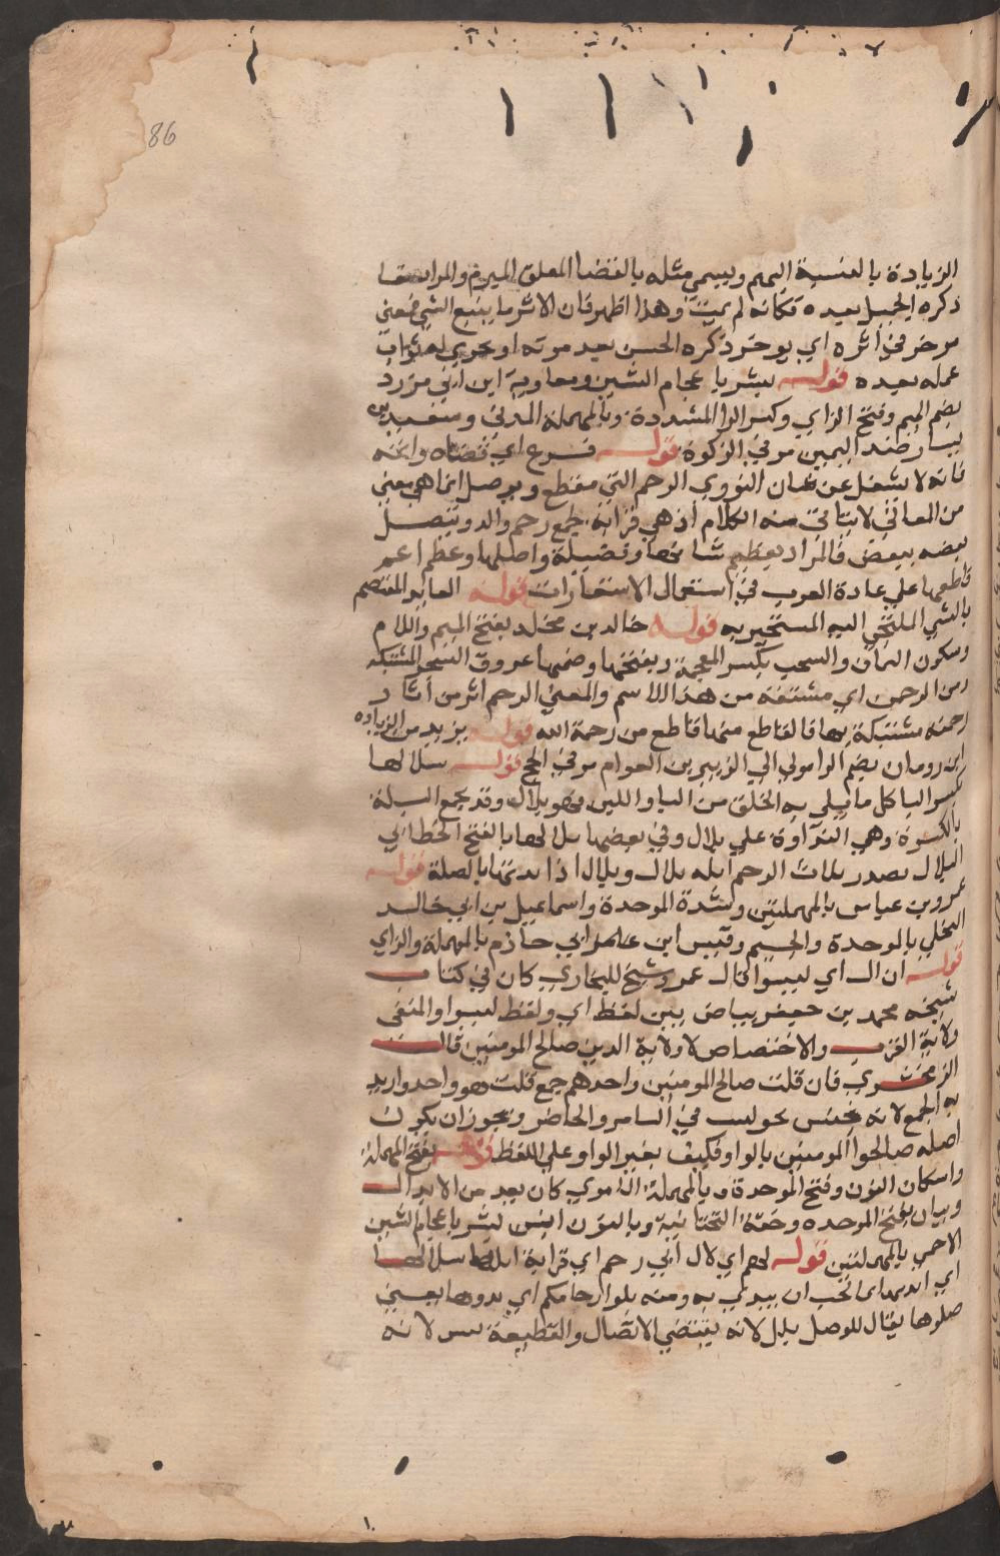 86
الزيادة بالنسبة اليهم ويسمي مثله بالقضا المعلق المبرم والمراد بقا
ذكره الجميل بعده فكانه لم يمت وهذا اظهر فان الاثر ما يتبع الشي فمعنى
موخر في اثره اي يوخر ذكره الحسن بعد موته او يجري له ثواب
عمله بعده قوله بشر باعجام الشين ومعاوية ابن ابي مزرد
بضم الميم وفتح الزاي وكسر الرا المشددة وبالمهملة المدني وسعيد بن
يسار ضد اليمين مر في الزكوة قوله فرغ اي قضاه واتمه
فانه لا يشغل عن شان النووي الرحم التي تقطع وتوصل انما هي معنى
من المعاني لا يتاتي منه الكلام اذ هي قرابة تجمع رحم والد ويتصل
بعضه ببعض فالمراد تعظيم شانها وفضيلة واصلها وعظم اثم
قاطعها علي عادة العرب في استعمال الاستعارات قوله العايذ المعتصم
بالشي الملتجي اليه المستجير به قوله خالد بن مخلد بفتح الميم واللام
وسكون الخا والشجب بكسر المعجمة وبفتحها وضمها عروق الشجر المشتبكة
ومن الرحمن اي مشتقة من هذا الاسم والمعني الرحم اثر من اثار
رحمته مشتبكة بها فالقاطع منها قاطع من رحمة الله قوله يزيد من الزيادة
ابن رومان بضم الرا مولي الي الزبير بن العوام مر في الحج قوله ببلالها
بكسر البا كل ما يبل به الحلق من الما واللبن فهو بلال وقد يجمع البلة
بالكسرة وهي النداوة علي بلال وفي بعضها ببلالها بالفتح الخطابي
البلال مصدر بللت الرحم ابله بللا وبلالا اذا نديتها بالصلة قوله
عمرو بن عباس بالمهملتين وشدة الموحدة واسماعيل بن ابي خالد
البجلي بالموحدة والجيم وقيس ابن ابي حازم بالمهملة والزاي
قوله ان ال اي ليسوا قال عمرو شيخ للبخاري كان في كتاب
شيخه محمد بن جعفر بياض بين لفظ اي ولفظ ليسوا والمنفى
ولاية القرب والاختصاص لا ولاية الدين صالح المومنين قال
الزمخشري فان قلت صالح المومنين واحد هم جمع قلت هو واحد واريد
به الجمع لانه جنس نحو ليت في السامر والحاضر ويجوز ان يكون
اصله صالحوا المومنين بالواو فكتب بغير الواو علي اللفظ قوله بفتح المهملة
واسكان النون وفتح الموحدة وبالمهملة الاموي كان يعد من الابدال
وبيان بفتح الموحده وخفة التحتانية وبالنون ابن بشر باعجام الشين
الاحمسي بالمهملتين قوله لهم اي لال ابي رحم اي قرابة ابلها ببلالها
اي انديها بما يجب ان يندي به ومنه بلوا ارحامكم اي ندوها يعني
صلوها يقال للوصل بلل لانه يقتضي الاتصال والقطيعة يبس لانه